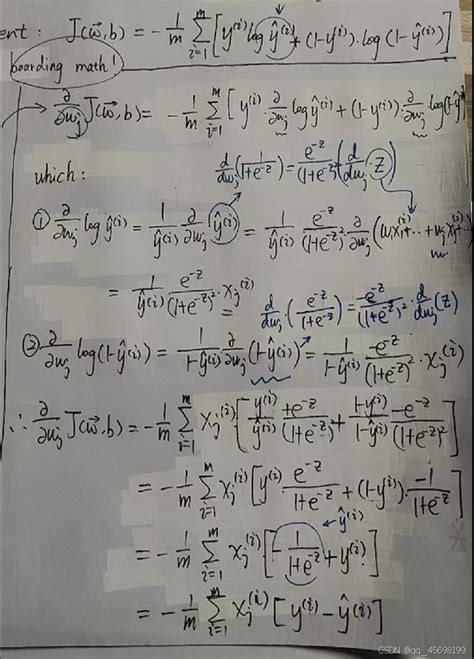 ent: J(w⃗,b) = -1/m Σ_{i=1}^{m} [y^(i) log ŷ^(i) + (1-y^(i)).log(1-ŷ^(i))]
boarding math!
∂/∂wj J(w⃗,b) = -1/m Σ_{i=1}^{m} [y^(i) · ∂/∂wj log ŷ^(i) + (1-y^(i)) · ∂/∂wj log(1-ŷ^(i))
which:
d/dwj (1/(1+e^-z)) = e^-z/(1+e^-z)² (d/dwj · z)
① ∂/∂wj log ŷ^(i) = 1/ŷ^(i) ∂/∂wj (ŷ^(i)) = 1/ŷ^(i) e^-z/(1+e^-z)² · ∂/∂wj (w1x1^(i)+...+wjxj^(i)+...
= 1/ŷ^(i) e^-z/(1+e^-z)² · xj^(i)
d/dwj · (e^-z/(1+e^-z)) = -e^-z/(1+e^-z)² · d/dwj (z)
② ∂/∂wj log(1-ŷ^(i)) = 1/(1-ŷ^(i)) ∂/∂wj (1-ŷ^(i)) = 1/(1-ŷ^(i)) -e^-z/(1+e^-z)² · xj^(i)
∴ ∂/∂wj J(w⃗,b) = -1/m Σ_{i=1}^{m} xj^(i) [y^(i)/ŷ^(i) +e^-z/(1+e^-z)² + (1-y^(i))/(1-ŷ^(i)) -e^-z/(1+e^-z)²]
= -1/m Σ_{i=1}^{m} xj^(i) [y^(i) · e^-z/(1+e^-z) + (1-y^(i)) · -1/(1+e^-z)]
ŷ^(i)
= -1/m Σ_{i=1}^{m} xj^(i) [-1/(1+e^-z) + y^(i)]
= -1/m Σ_{i=1}^{m} xj^(i) [y^(i) - ŷ^(i)]
CSDN @qq_45698199